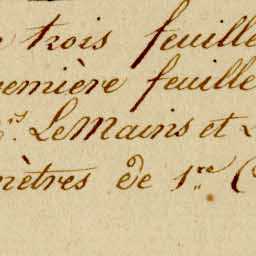 trois feuille
remière feuille
rs. LeMains et L
mètres de 1re. C